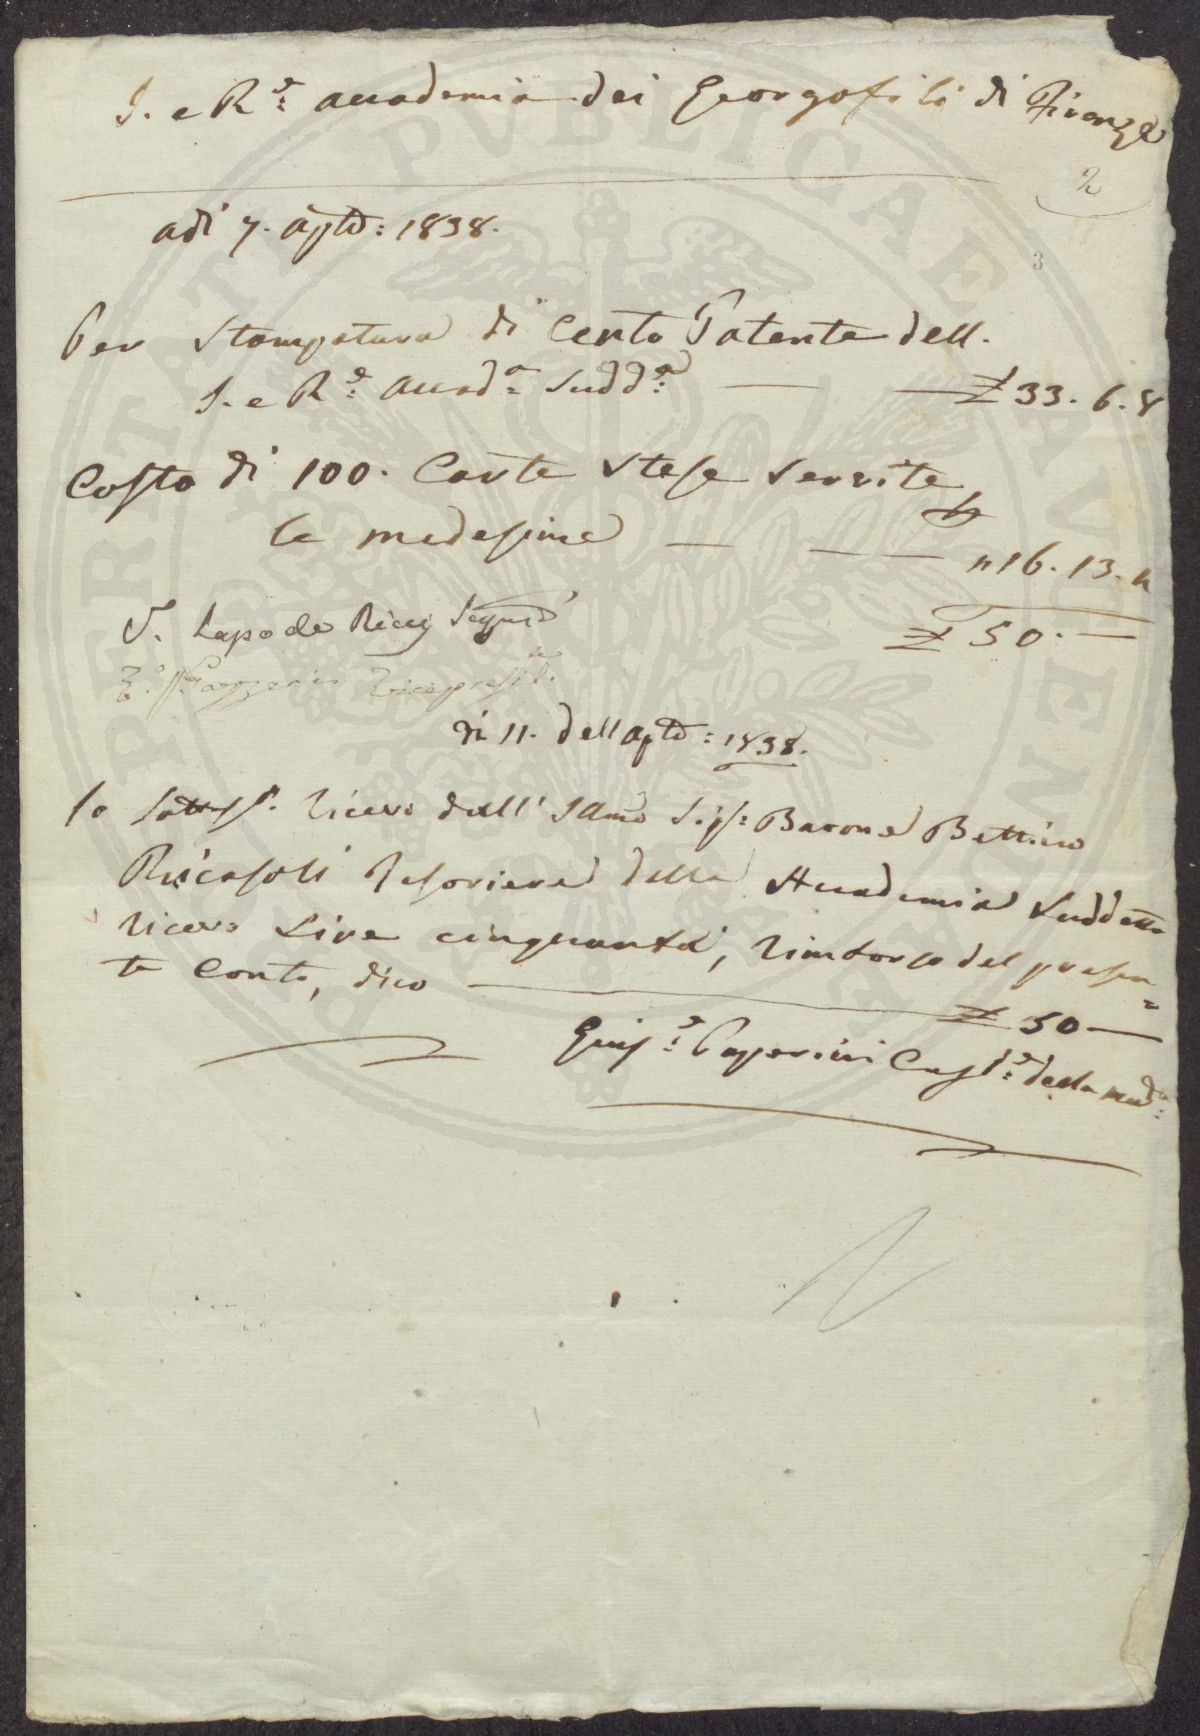 I. e R.e Accademia dei Georgofili di Firenze
2
adì 7. Agto: 1838.
3
Per Stampatura di Cento Patente dell.
I. e R.e Accad.a Sudd.a £ 33. 6. 8
Costo di 100. Carte Stese Servite
le medesime " 16. 13. 4
V. Lapo de Ricci Segret.
£ 50. —
V.o Gazzeri Vicepresid.te
di 11. dell Agto: 1838.
Io Sottss. ricevo dall' Illmo Sigr: Barone Bettino
Ricasoli Tesoriere della Accademia Suddetta
ricevo Lire cinquanta, rimborso del presen=
te Conto, dico £ 50 —
Gius.e Paperini Cust.e della med.a
PUBLICAE PERPETUAE